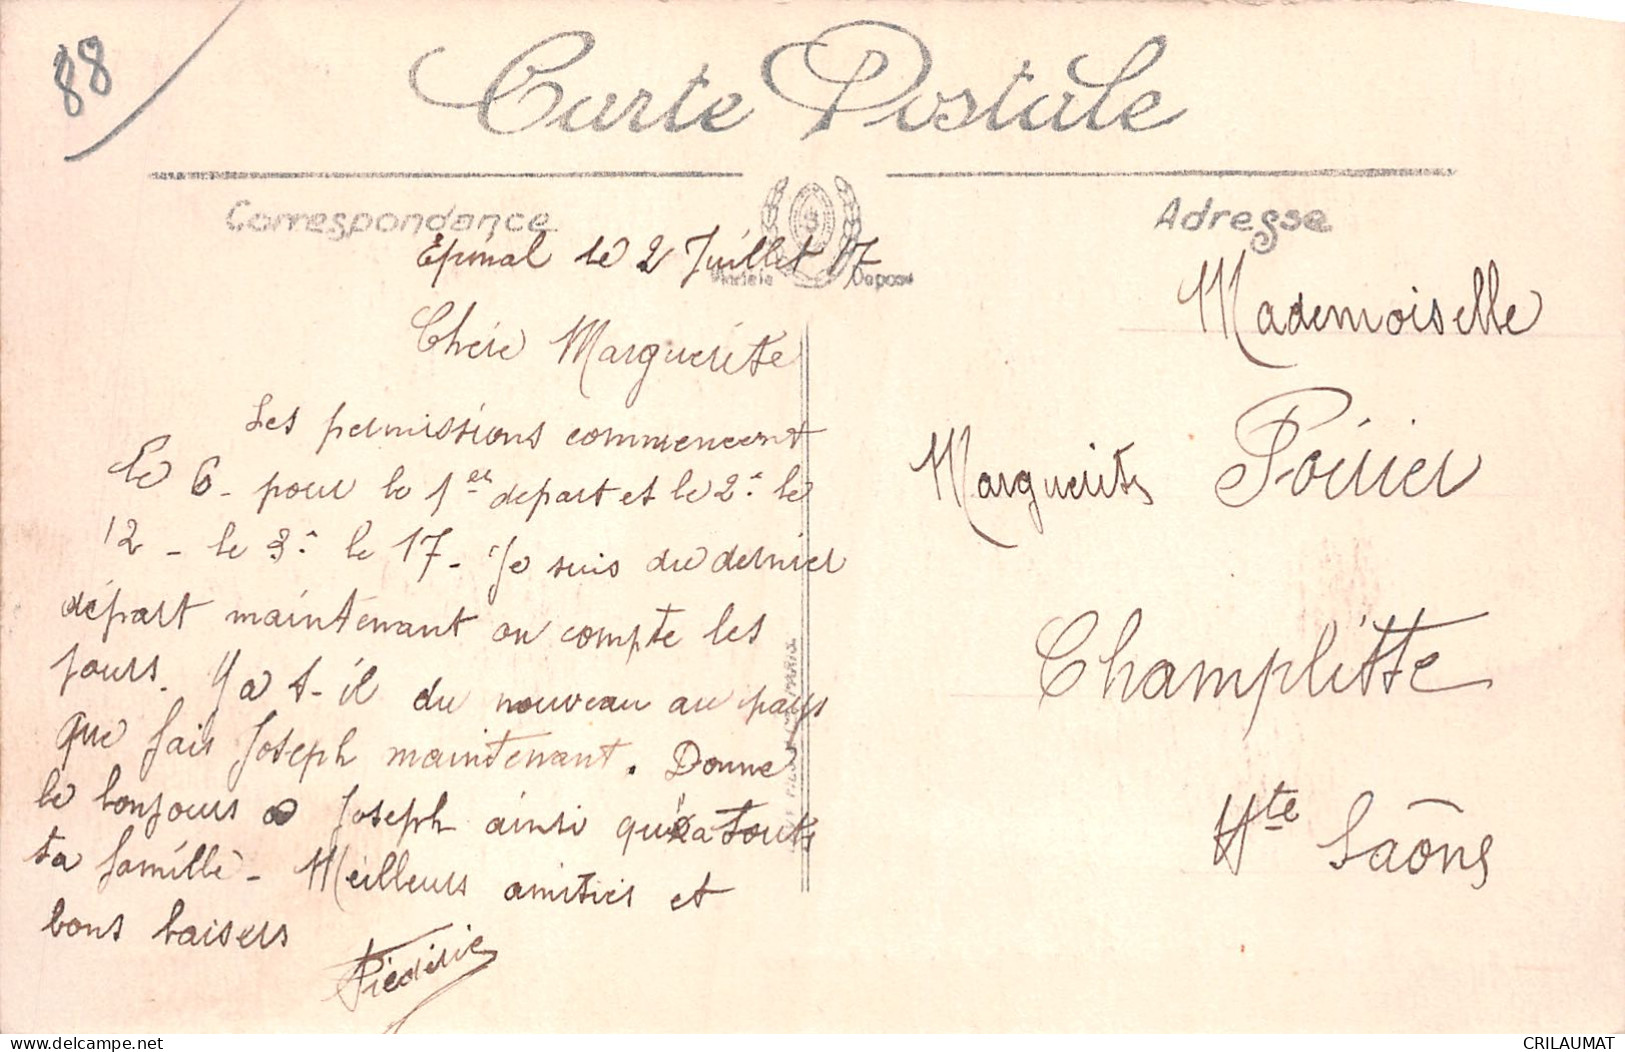 88
Carte Postale
Correspondance
Adresse
Modèle Déposé
Epinal le 2 Juillet 17
Chère Marguerite
Les permissions commencent
le 6 - pour le 1er depart et le 2e le
12 - le 3e le 17 - Je suis du dernier
départ maintenant on compte les
jours. Y a t-il du nouveau au pays
que fais Joseph maintenant. Donne
le bonjours a Joseph ainsi qu'a touts
ta famille - Meilleurs amitiés et
bons baisers
Fréderic
Mademoiselle
Marguerite Poirier
Champlitte
Hte Saône
PARIS
CRILAUMAT